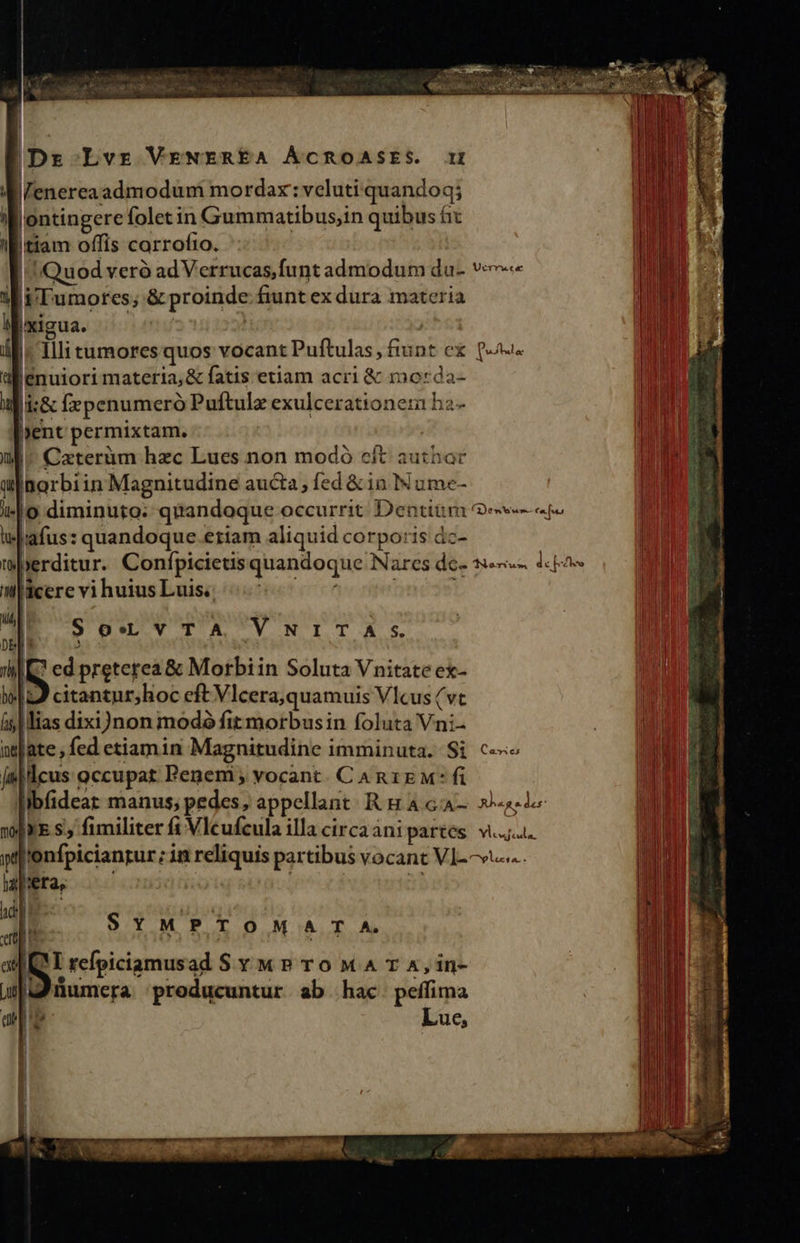 De Lve Venerea Acroases. 11
Venerea admodum mordax: veluti quandoq;
contingere ſolet in Gummatibus, in quibus fit
etiam oſſis corroſio.
Quod verò ad Verrucas, ſunt admodum du- Verrucæ
Tumores; & proinde fiunt ex dura materia
exigua.
Illi tumores quos vocant Puſtulas, fiunt ex
tenuiori materia, & ſatis etiam acri & morda-
ci: & ſæpenumerò Puſtulæ exulcerationem ha-
bent permixtam.
Cæterùm hæc Lues non modò eſt author
morbi in Magnitudine aucta, ſed & in Nume-
ro diminuto: quandoque occurrit Dentium Dentium caſus
caſus: quandoque etiam aliquid corporis de-
perditur. Conſpicietis quandoque Nares de-
ficere vi huius Luis.
SOLVTA VNITAS.
Sed prętereа & Morbi in Soluta Vnitate ex-
citantur, hoc eſt Vlcera, quamuis Vlcus (vt
alias dixi) non modò fit morbus in ſoluta Vni-
tate, ſed etiam in Magnitudine imminuta. Si Caries
vlcus occupat Penem, vocant CARIEM: ſi
obſideat manus, pedes, appellant RHAGA- Rhagades
DES, ſimiliter ſi Vlcuſcula illa circa ani partes
conſpiciantur: in reliquis partibus vocant Vl-
cera.
SYMPTOMATA.
SI reſpiciamus ad SYMPTOMATA, in-
numera producuntur ab hac peſſima
Lue,